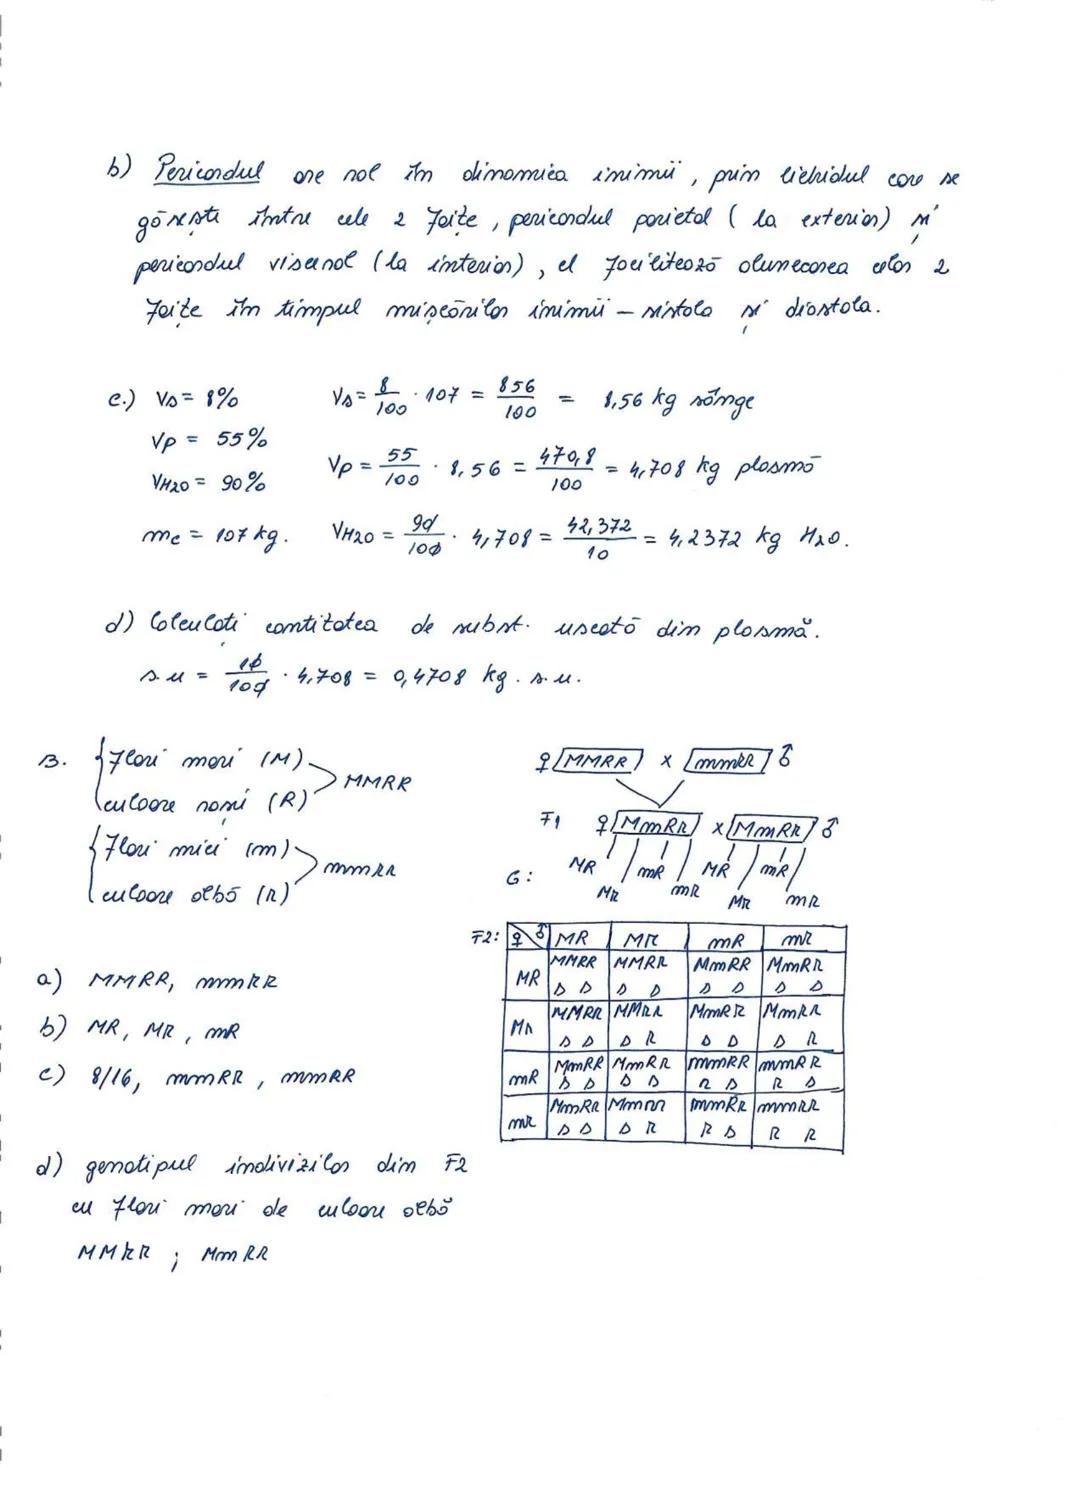 b) Pericardul are rol în dinamica inimii, prin lichidul care se
găsește între cele 2 foițe, pericardul parietal (la exterior) și
pericardul visceral (la interior), el facilitează alunecarea celor 2
foițe în timpul mișcărilor inimii – sistola și diastola.
c.) Vs = 8% Vs = 8/100 · 107 = 856/100 = 8,56 kg sânge
Vp = 55% Vp = 55/100 · 8,56 = 470,8/100 = 4,708 kg plasmă
VH2O = 90%
mc = 107 kg. VH2O = 90/100 · 4,708 = 42,372/10 = 4,2372 kg H2O.
d) Calculați cantitatea de subst. uscată din plasmă.
s.u = 10/100 · 4,708 = 0,4708 kg. s.u.
B. Flori mari (M) MMRR
culoare roșii (R)
Flori mici (m) mmrr
culoare albă (r)
♀ MMRR x mmrr ♂
F1 ♀ MmRr x MmRr ♂
G: MR Mr mR mr MR Mr mR mr
F2: ♀ ♂ MR Mr mR mr
MR MMRR MMRr MmRR MmRr
D D D D D D D D
Mr MMRr MMrr MmRr Mmrr
D D D R D D D R
mR MmRR MmRr mmRR mmRr
D D D D R D R D
mr MmRr Mmrr mmRr mmrr
D D D R R D R R
a) MMRR, mmrr
b) MR, Mr, mR
c) 8/16, mmRR, mmRr
d) genotipul indivizilor din F2
cu flori mari de culoare albă
MMrr ; Mmrr